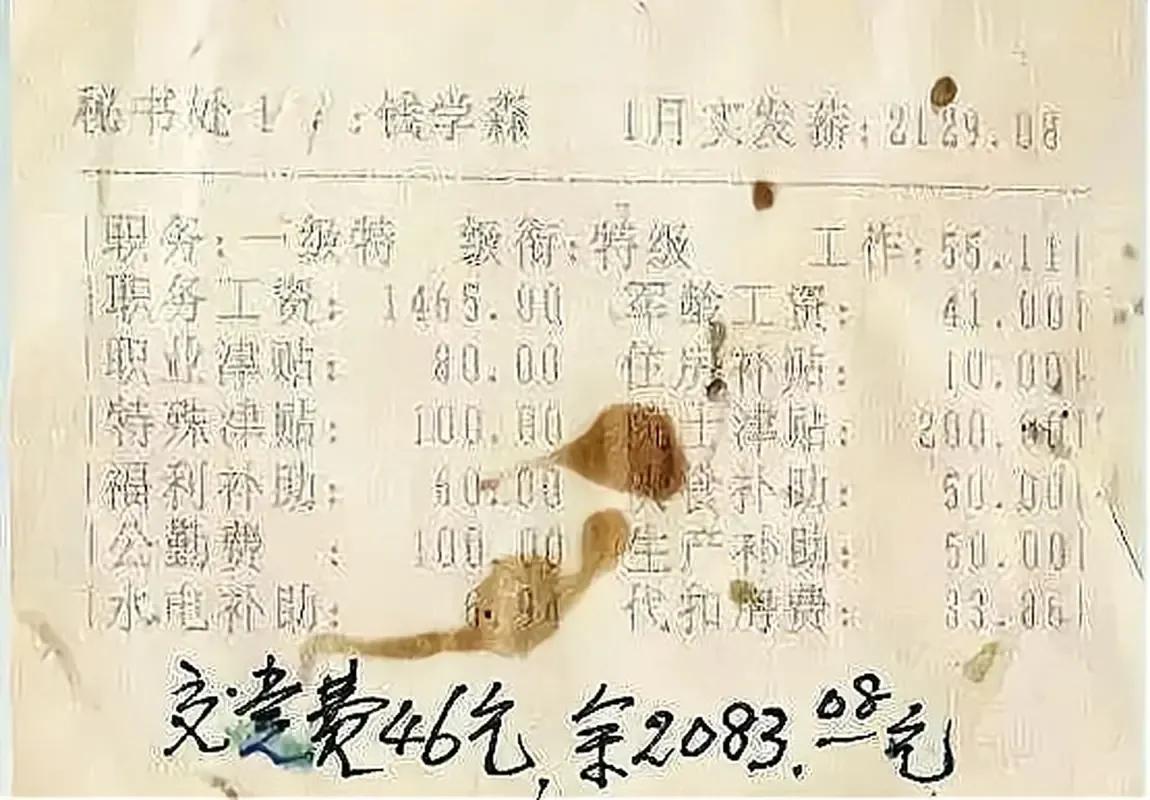 秘书处 : 钱学森 1月实发薪:2129.08
职务:一级特 级衔:特级 工作:55.11
职务工资: 1465.90 军龄工资: 41.00
职业津贴: 80.00 住房补贴: 10.00
特殊津贴: 100.00 院士津贴: 200.00
福利补助: 60.00 伙食补助: 60.00
公勤费 : 100.00 生产补助: 50.00
水电补助: 代扣 费:
交党费46元,余2083.08元